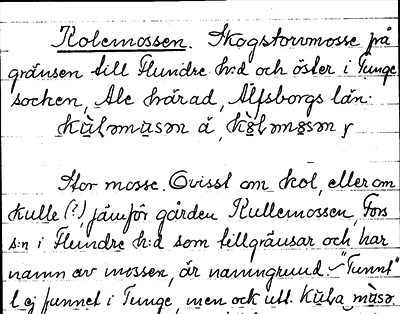 Kolemossen. Skogstorvmosse på
gränsen till Flundre h:d och öster i Tunge
socken, Ale härad, Älfsborgs län.
Stor mosse. Ovisst om kol, eller om
kulle (?), jämför gården Kullemossen, Fors
s:n i Flundre h:d som tillgränsar och har
namn av mossen, är namngrund. "Tunnt"
l ej funnet i Tunge, men ock utt.